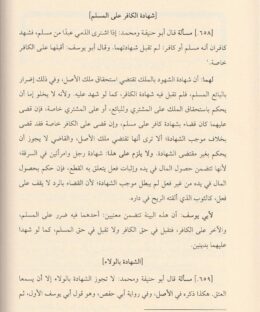 [شهادة الكافر على المسلم]
[٦٥٨.] مسألة قال أبو حنيفة ومحمد: إذا اشترى الذمي عبدًا من مسلم، فشهد
كافران أنه مسلم أو كافر: لم تقبل شهادتهما. وقال أبو يوسف: أقبلها على الكافر
خاصة.
لهما: أن شهادة الشهود بالملك تقتضي استحقاق ملك الأصل، وفي ذلك إضرار
بالبائع المسلم، فلم تقبل فيه شهادة الكافر، كما لو شهد عليه. ولأنه لا يخلو إما أن
يحكم باستحقاق الملك على المشتري والبائع، أو على المشتري خاصة، فإن قضى
عليهما كان قضاء بشهادة كافر على مسلم، وإن قضى على الكافر خاصة فقد قضى
بخلاف موجب الشهادة؛ ألا ترى أنها تقتضي ملك الأصل، والقاضي لا يجوز أن
يحكم بغير مقتضى الشهادة. ولا يلزم على هذا: شهادة رجل وامرأتين في السرقة؛
لأنها تتضمن حصول المال في يده وإثبات فعل يتعلق به القطع، فإن حكم بحصول
المال في يده من غير فعل لم يبطل موجب الشهادة؛ لأن القضاء بالرد لا يقف على
فعل، كالثوب الذي ألقته الريح في داره.
لأبي يوسف: أن هذه البينة تتضمن معنيين: أحدهما فيه ضرر على المسلم،
والآخر على الكافر، فتقبل في حق الكافر ولا تقبل في حق المسلم، كما لو شهدا
عليهما بدينين.
[الشهادة بالولاء]
[٦٥٩.] مسألة قال أبو حنيفة ومحمد: لا تجوز الشهادة بالولاء إلا أن يسمعا
العتق. هكذا ذكره في الأصل، وفي رواية أبي حفص، وهو قول أبي يوسف الأول، ثم